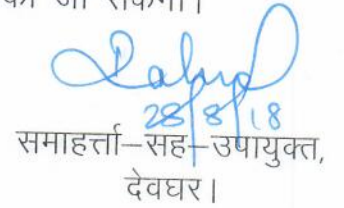 की जा सकेगी।
28/8/18
समाहर्त्ता–सह–उपायुक्त,
देवघर।